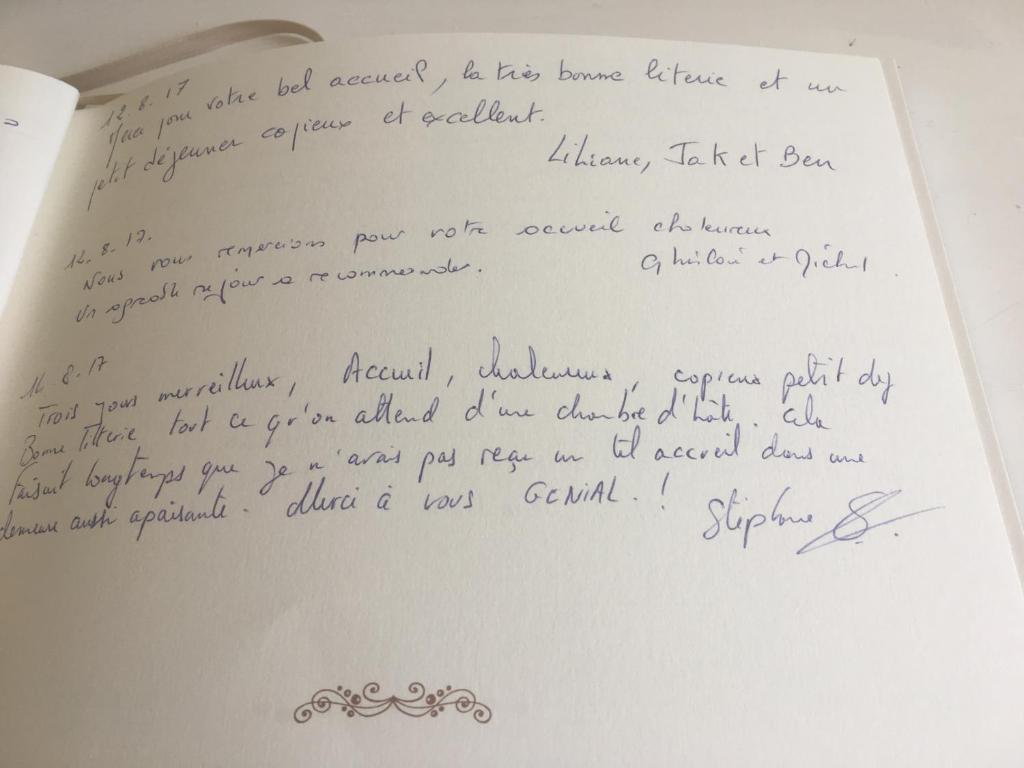 12.8.17
pour votre bel accueil, la très bonne literie et un
petit déjeuner copieux et excellent.
Liliane, Jak et Ben
12.8.17.
Nous vous remercions pour votre accueil chaleureux
un agréable séjour a recommander.
et Michel.
16.8.17
Trois jours merveilleux, Accueil, chaleureux, copieux petit dej
Bonne litterie tout ce qu'on attend d'une chambre d'hôte. Cela
faisait longtemps que je n'avais pas reçu un tel accueil dans une
demeure aussi apaisante. Merci à vous GENIAL.!
Stéphane